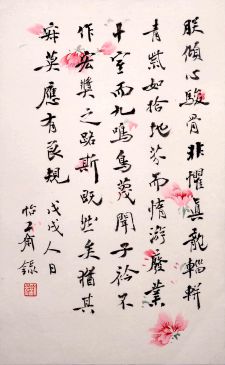 朕傾心駿骨非懼真龍輜軿
青紫如拾地芥而惰游廢業
十室而九鳴鳥蔑聞子衿不
作宏獎之路斯既然矣猶其
寂莫應有良規 戊戌人日
怡 齋錄